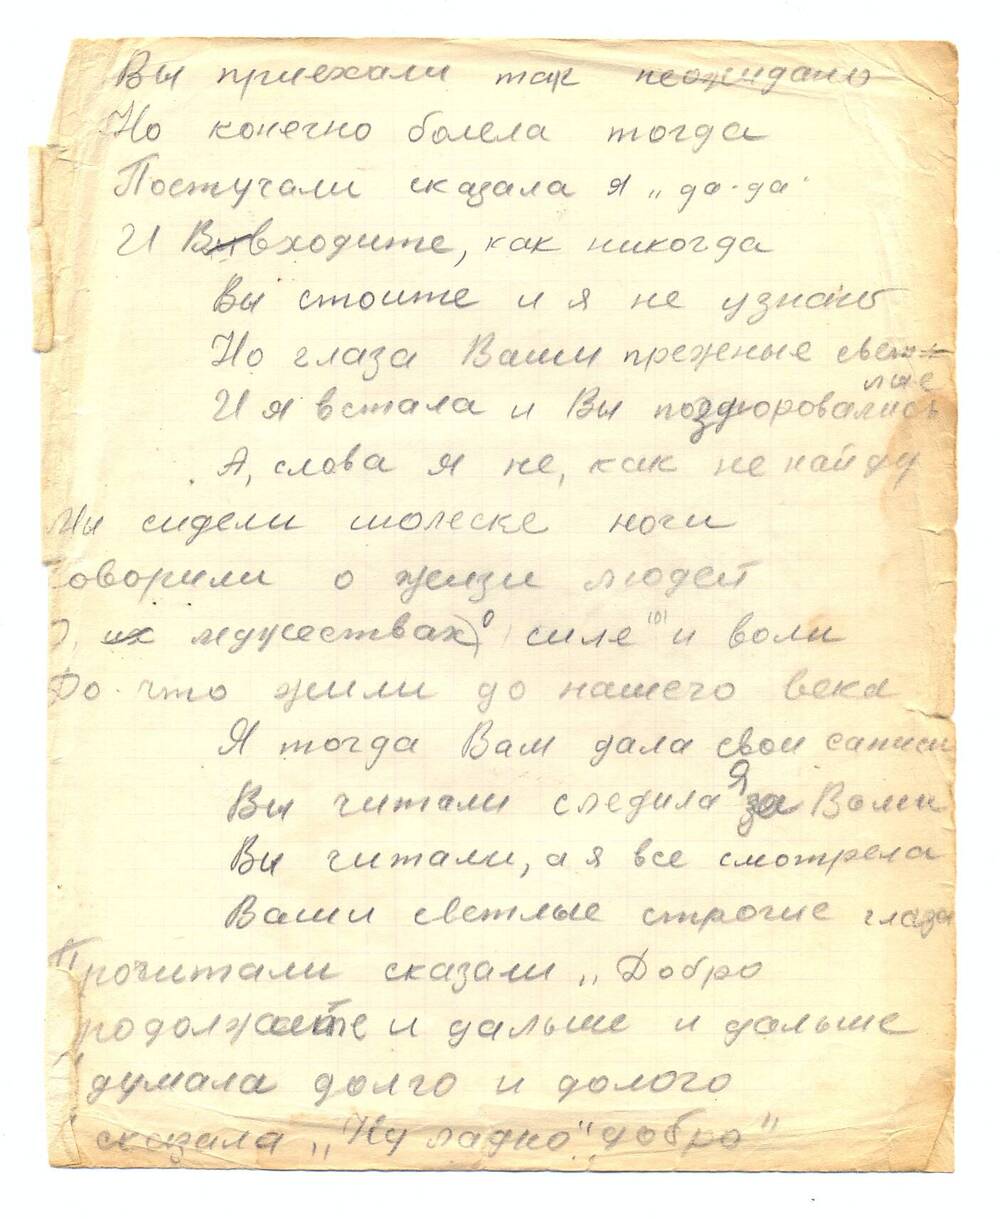 Вы приехали так неожидано
Но конечно болела тогда
Постучали сказала я „да-да"
И входите, как никогда
Вы стоите и я не узнаю
Но глаза Ваши прежные светлые
И я встала и Вы поздоровались
А, слова я не, как не найду
Мы сидели ночи
оворили о жизи людей
мужествах, о силе "(о)" и воли
До что жили до нашего века
Я тогда Вам дала свои саписи
Вы читали следила я за Вами
Вы читали, а я все смотрела
Ваши светлые строгие глаза
Прочитали сказали „Добро
родолжайте и дальше и дальше
думала долго и долого
сказала „Ну ладно" добро"